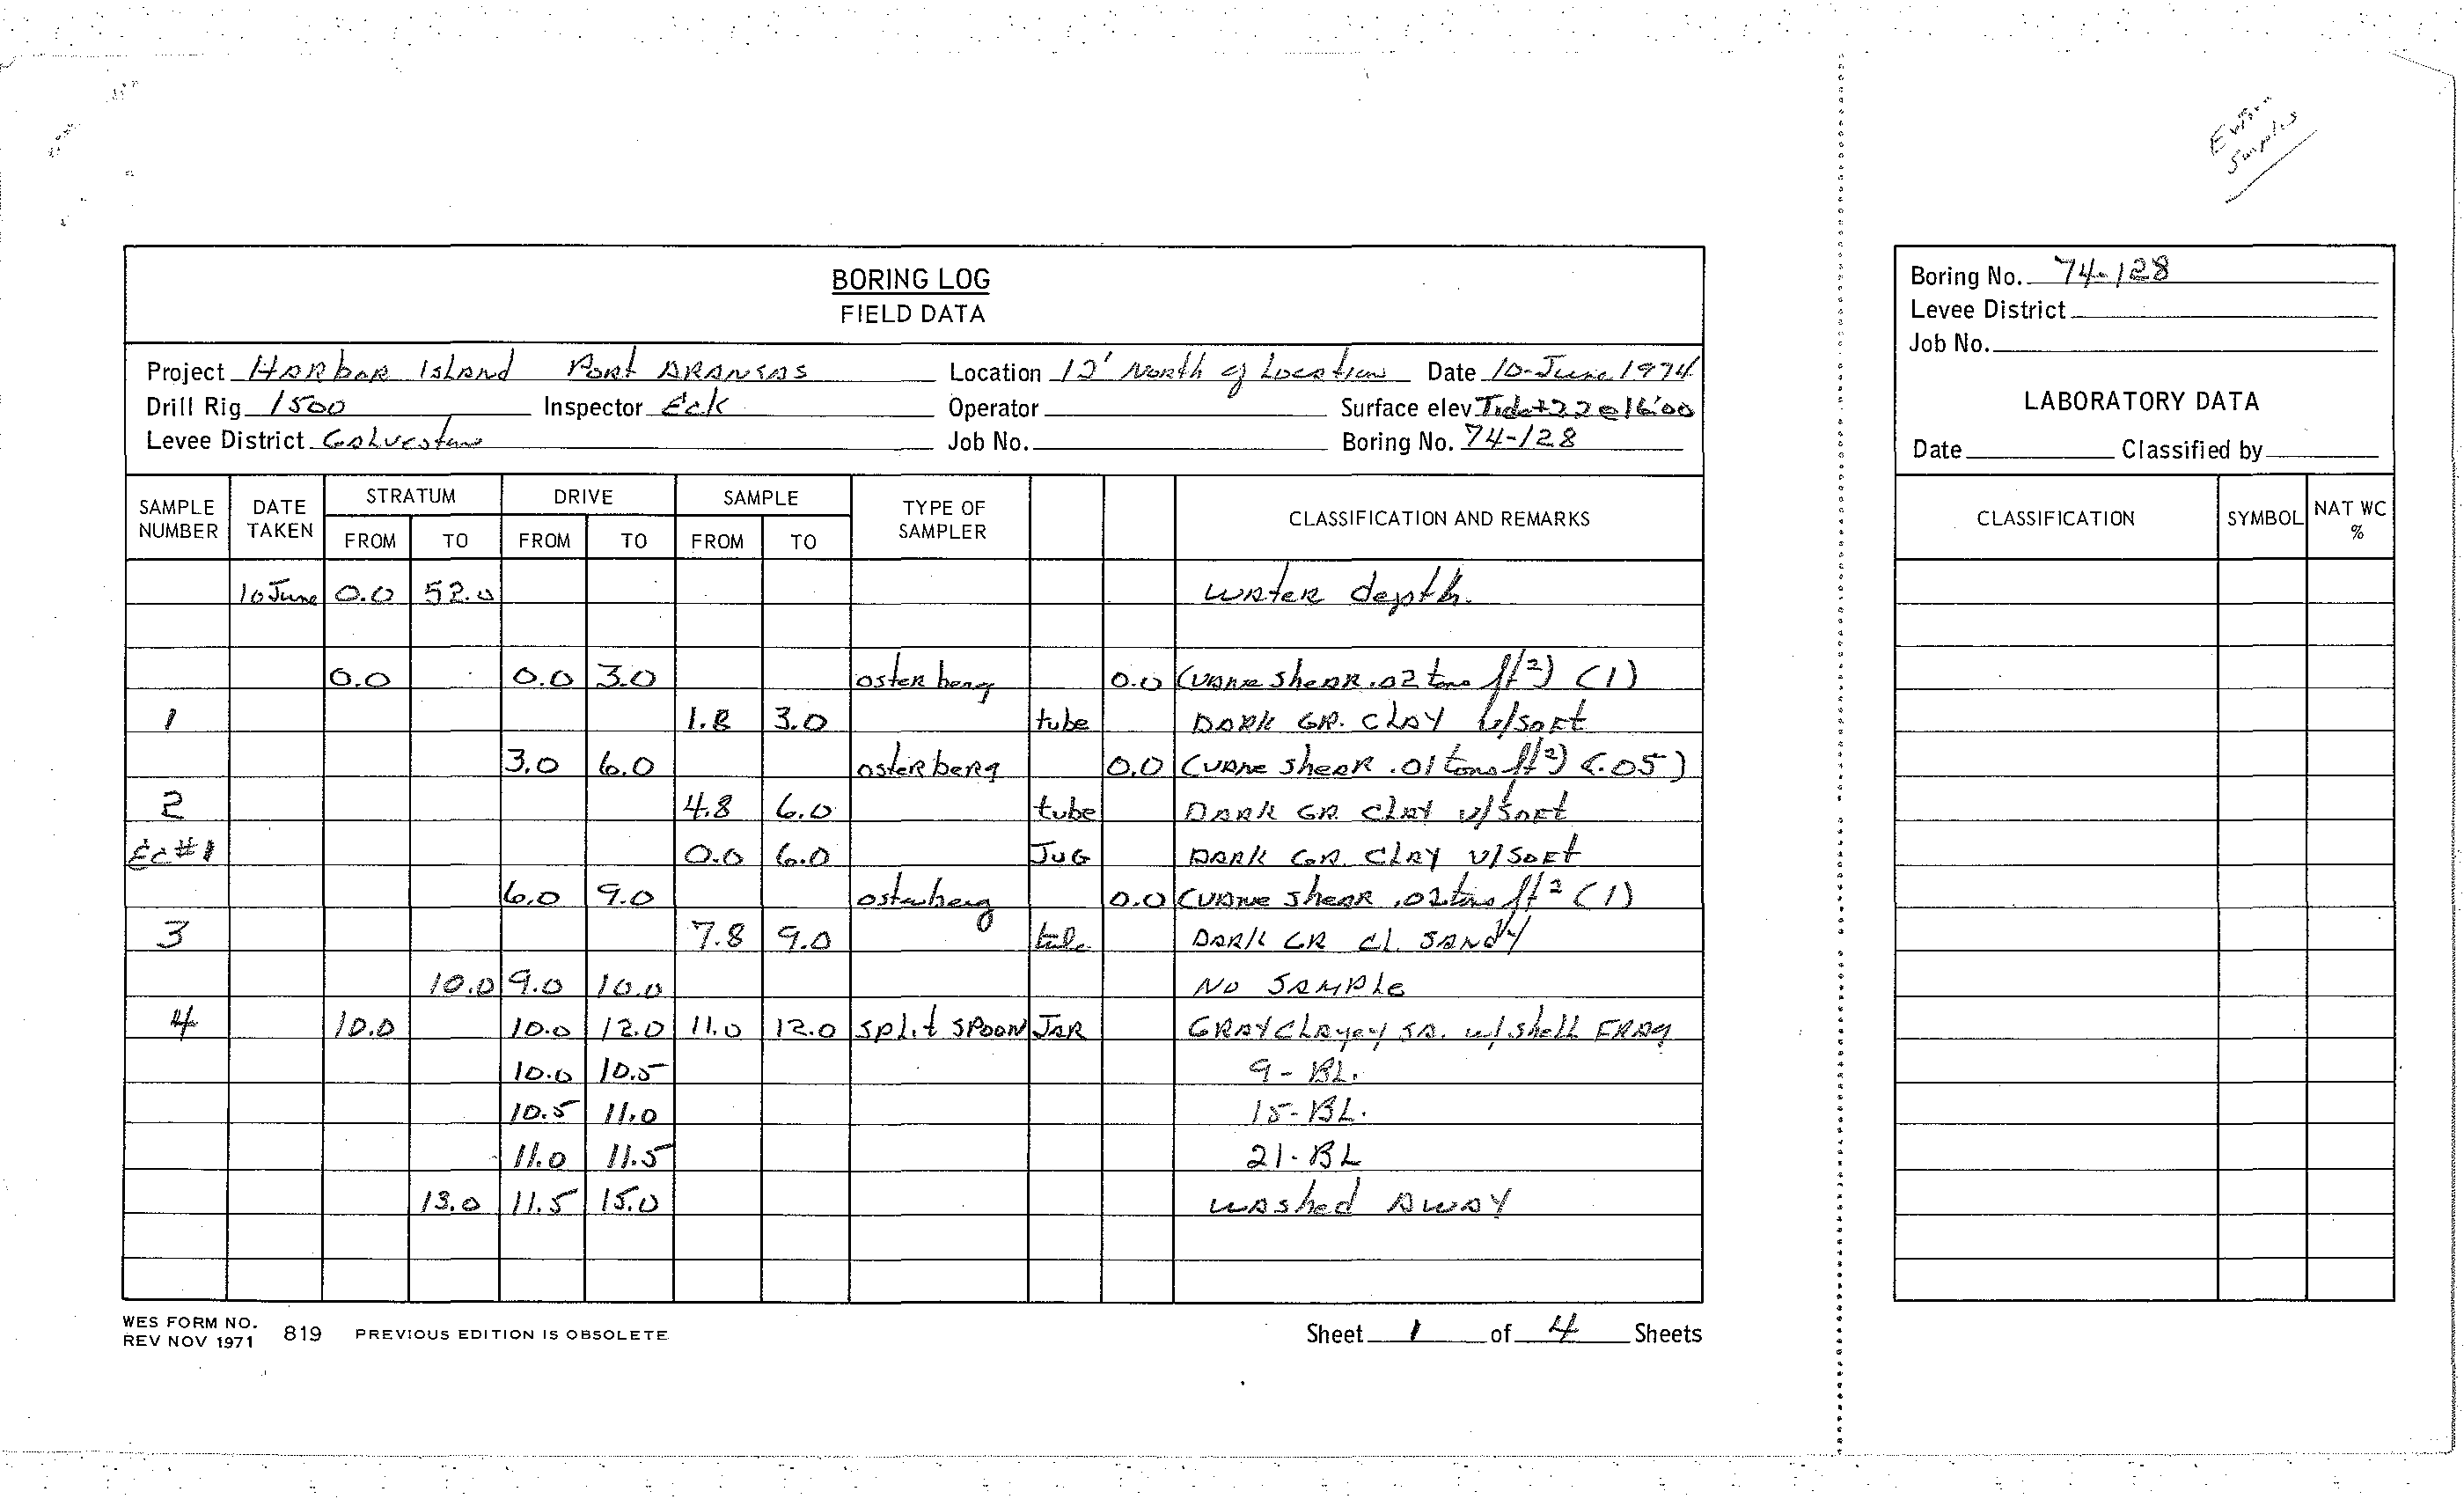 Extra
Samples
BORING LOG
FIELD DATA
Project Harbor Island Port Aransas Location 12' North of Location Date 10-June 1974
Drill Rig 1500 Inspector Eck Operator Surface elev Tide+2.2@1600
Levee District Galveston Job No. Boring No. 74-128
SAMPLE NUMBER DATE TAKEN STRATUM FROM TO DRIVE FROM TO SAMPLE FROM TO TYPE OF SAMPLER CLASSIFICATION AND REMARKS
10 June 0.0 52.0 water depth.
0.0 0.0 3.0 osterberg 0.0 (vane shear .02 tons ft²) (1)
1 1.8 3.0 tube DARK GR. CLAY v/soft
3.0 6.0 osterberg 0.0 (vane shear .01 tons ft²) (.05)
2 4.8 6.0 tube DARK GR. CLAY v/soft
Ec#1 0.0 6.0 JUG DARK GR. CLAY v/soft
6.0 9.0 osterberg 0.0 (vane shear .02 tons ft² (1)
3 7.8 9.0 tube DARK GR cl. SANDY
10.0 9.0 10.0 NO SAMPLE
4 10.0 10.0 12.0 11.0 12.0 split spoon JAR GRAY CLAYEY SA. w/shell FRAG
10.0 10.5 9- BL.
10.5 11.0 15-BL.
11.0 11.5 21-BL
13.0 11.5 15.0 washed AWAY
WES FORM NO. 819 PREVIOUS EDITION IS OBSOLETE
REV NOV 1971
Sheet 1 of 4 Sheets
Boring No. 74-128
Levee District
Job No.
LABORATORY DATA
Date Classified by
CLASSIFICATION SYMBOL NAT WC %